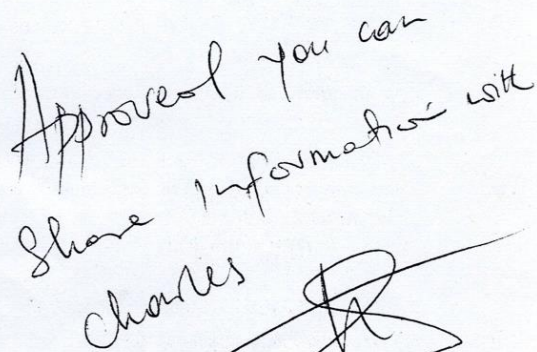 Approved you can
Share Information with
Charles